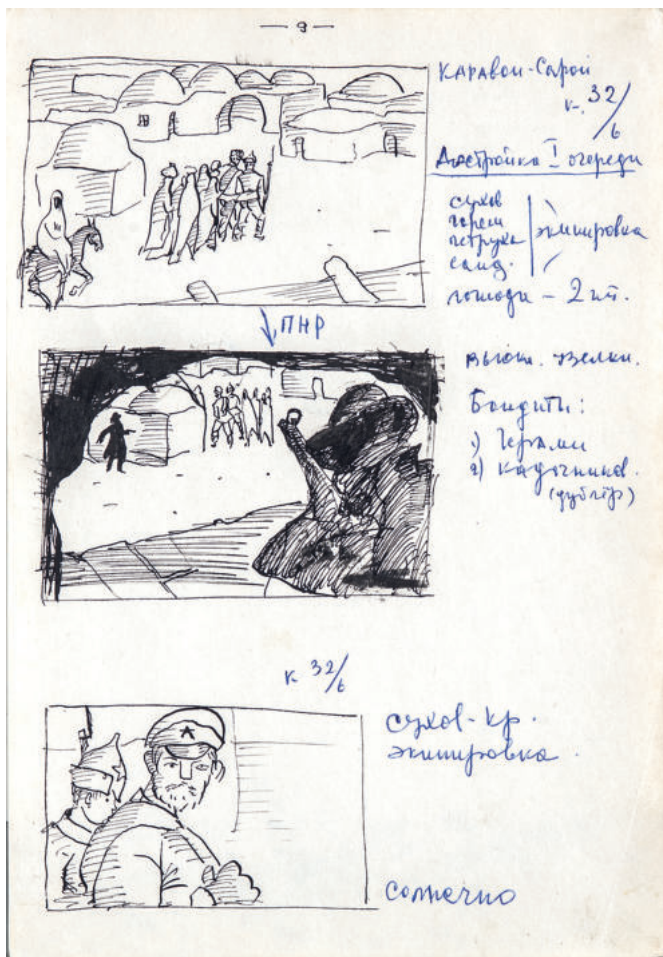 — 9 —
Караван-Сарай
к. 32/6
Достройка I очереди
сухов
гарем
петруха
саид.
экипировка
лошади – 2 шт.
ПНР
вьюки. узелки.
Бандиты:
1)
2) Кадочников.
(дублёр)
к 32/6
сухов-кр.
экипировка.
солнечно